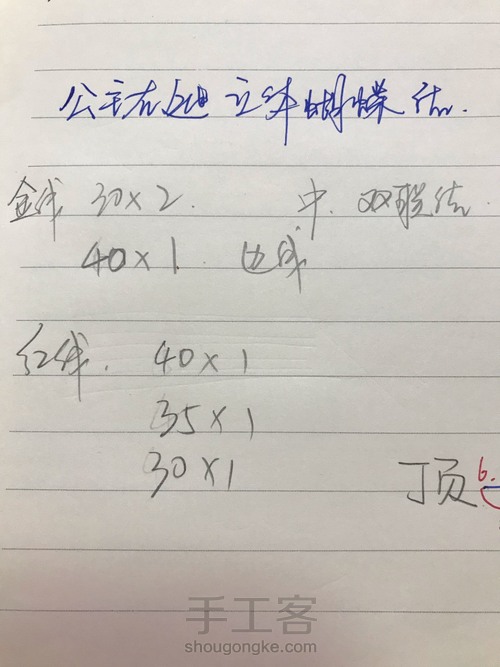 公主右边 立体蝴蝶结.
金线 30×2. 中. 双联结.
40×1. 边线
红线. 40×1
35×1
30×1
顶 6.
手工客
shougongke.com